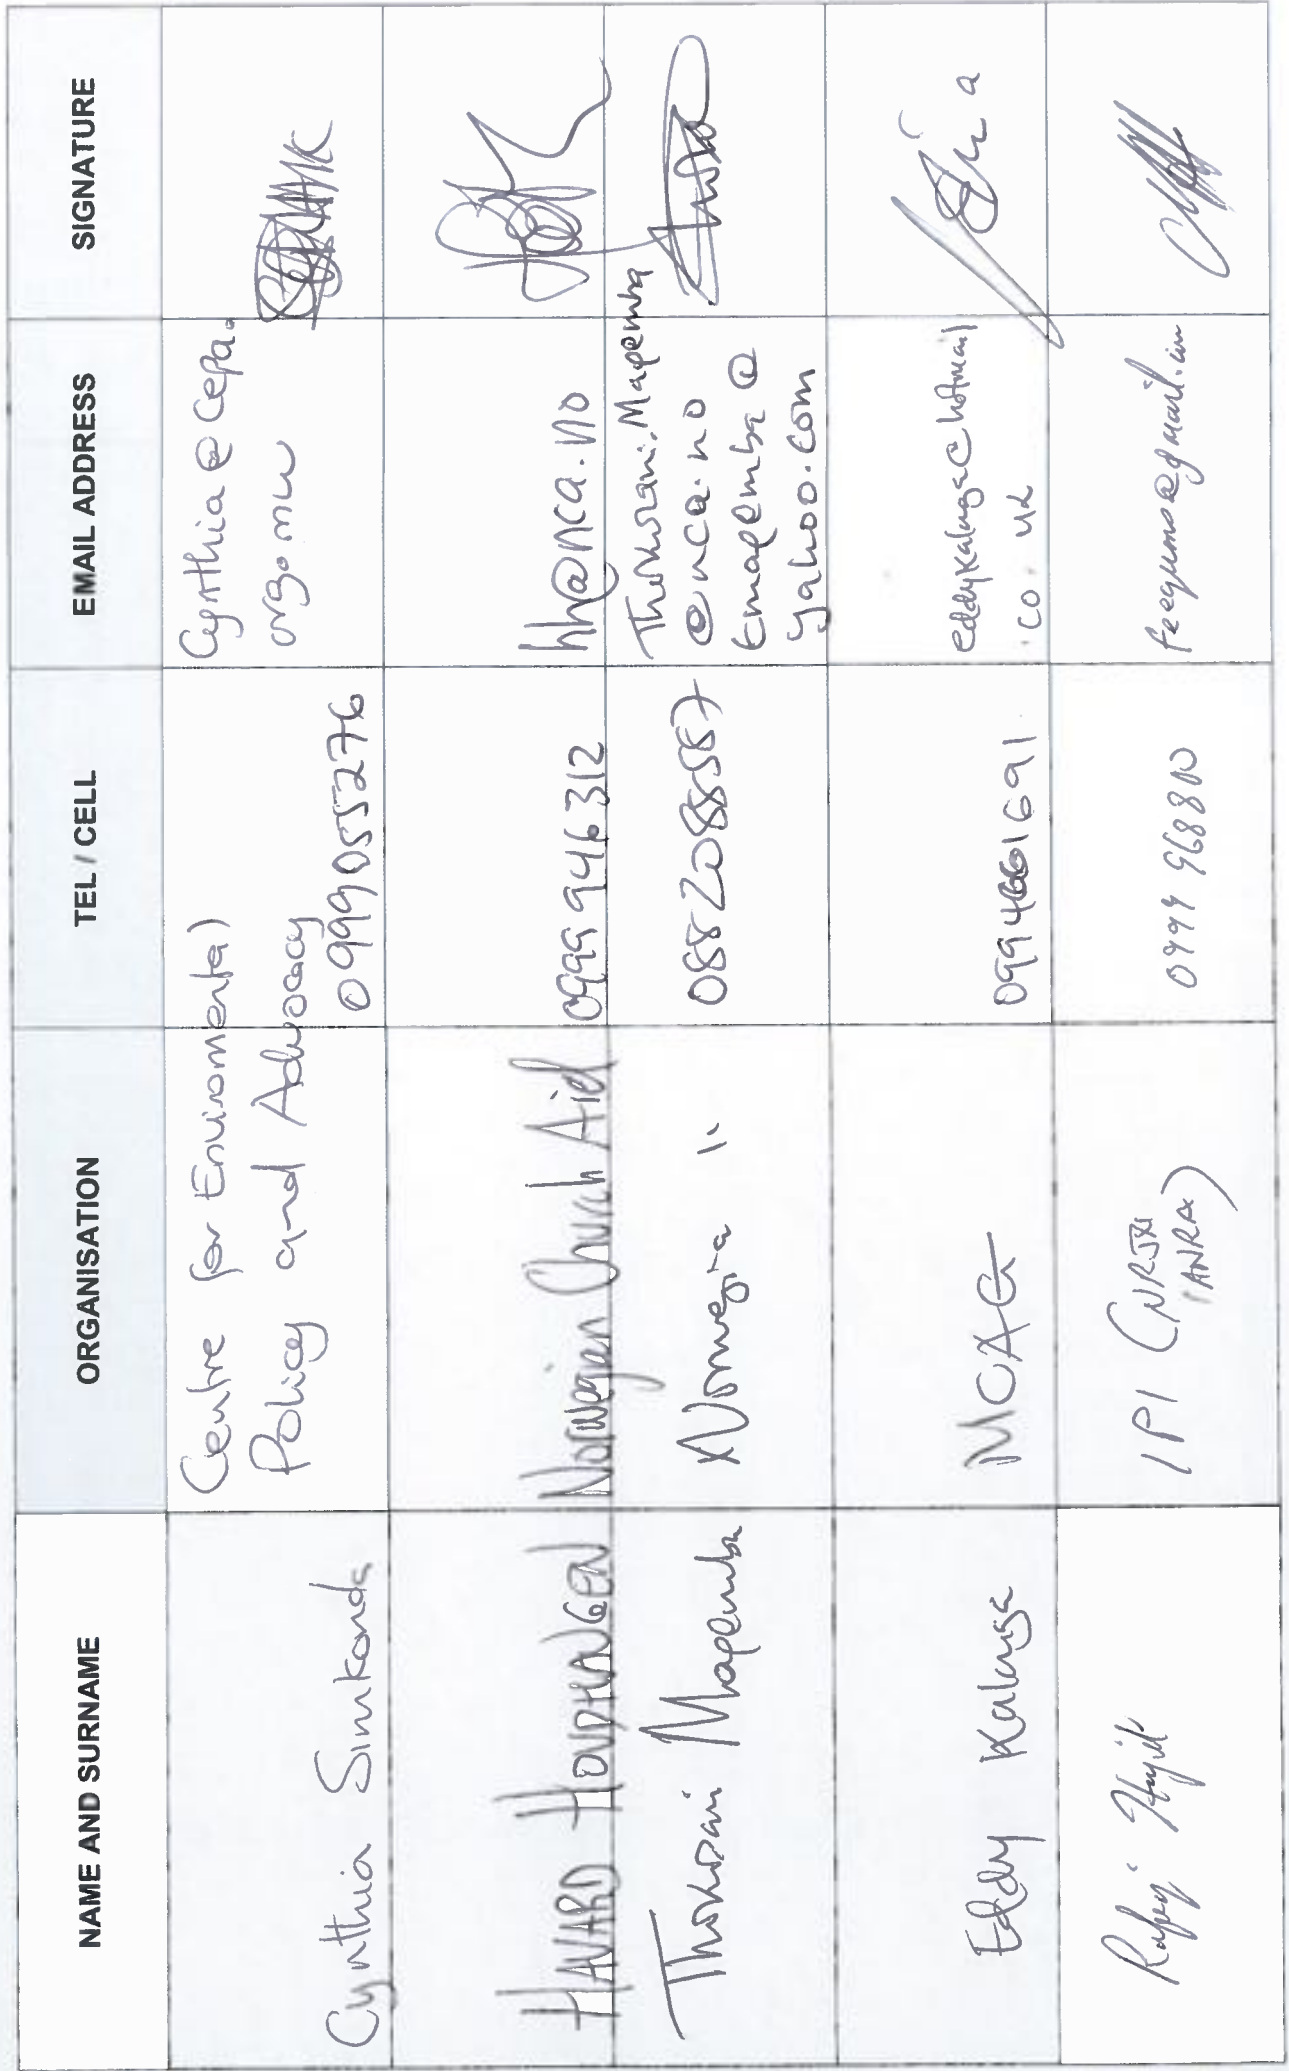 NAME AND SURNAME
ORGANISATION
TEL / CELL
EMAIL ADDRESS
SIGNATURE
Cynthia Simkonda
Centre for Environmental
Policy and Advocacy
0999055276
Cynthia@cepa.
org.mw
HAVARD HOVDHAUGEN
Norwegian Church Aid
0999946312
hh@nca.no
Thokozani Mapemba
Norwegian "
0882088587
Thokozani.Mapemba
@nca.no
Emapemba@
yahoo.com
Eddy Kalonga
MCAG
eddykalonga@hotmail
.co.uk
IPI (NRJN
(ANRA)